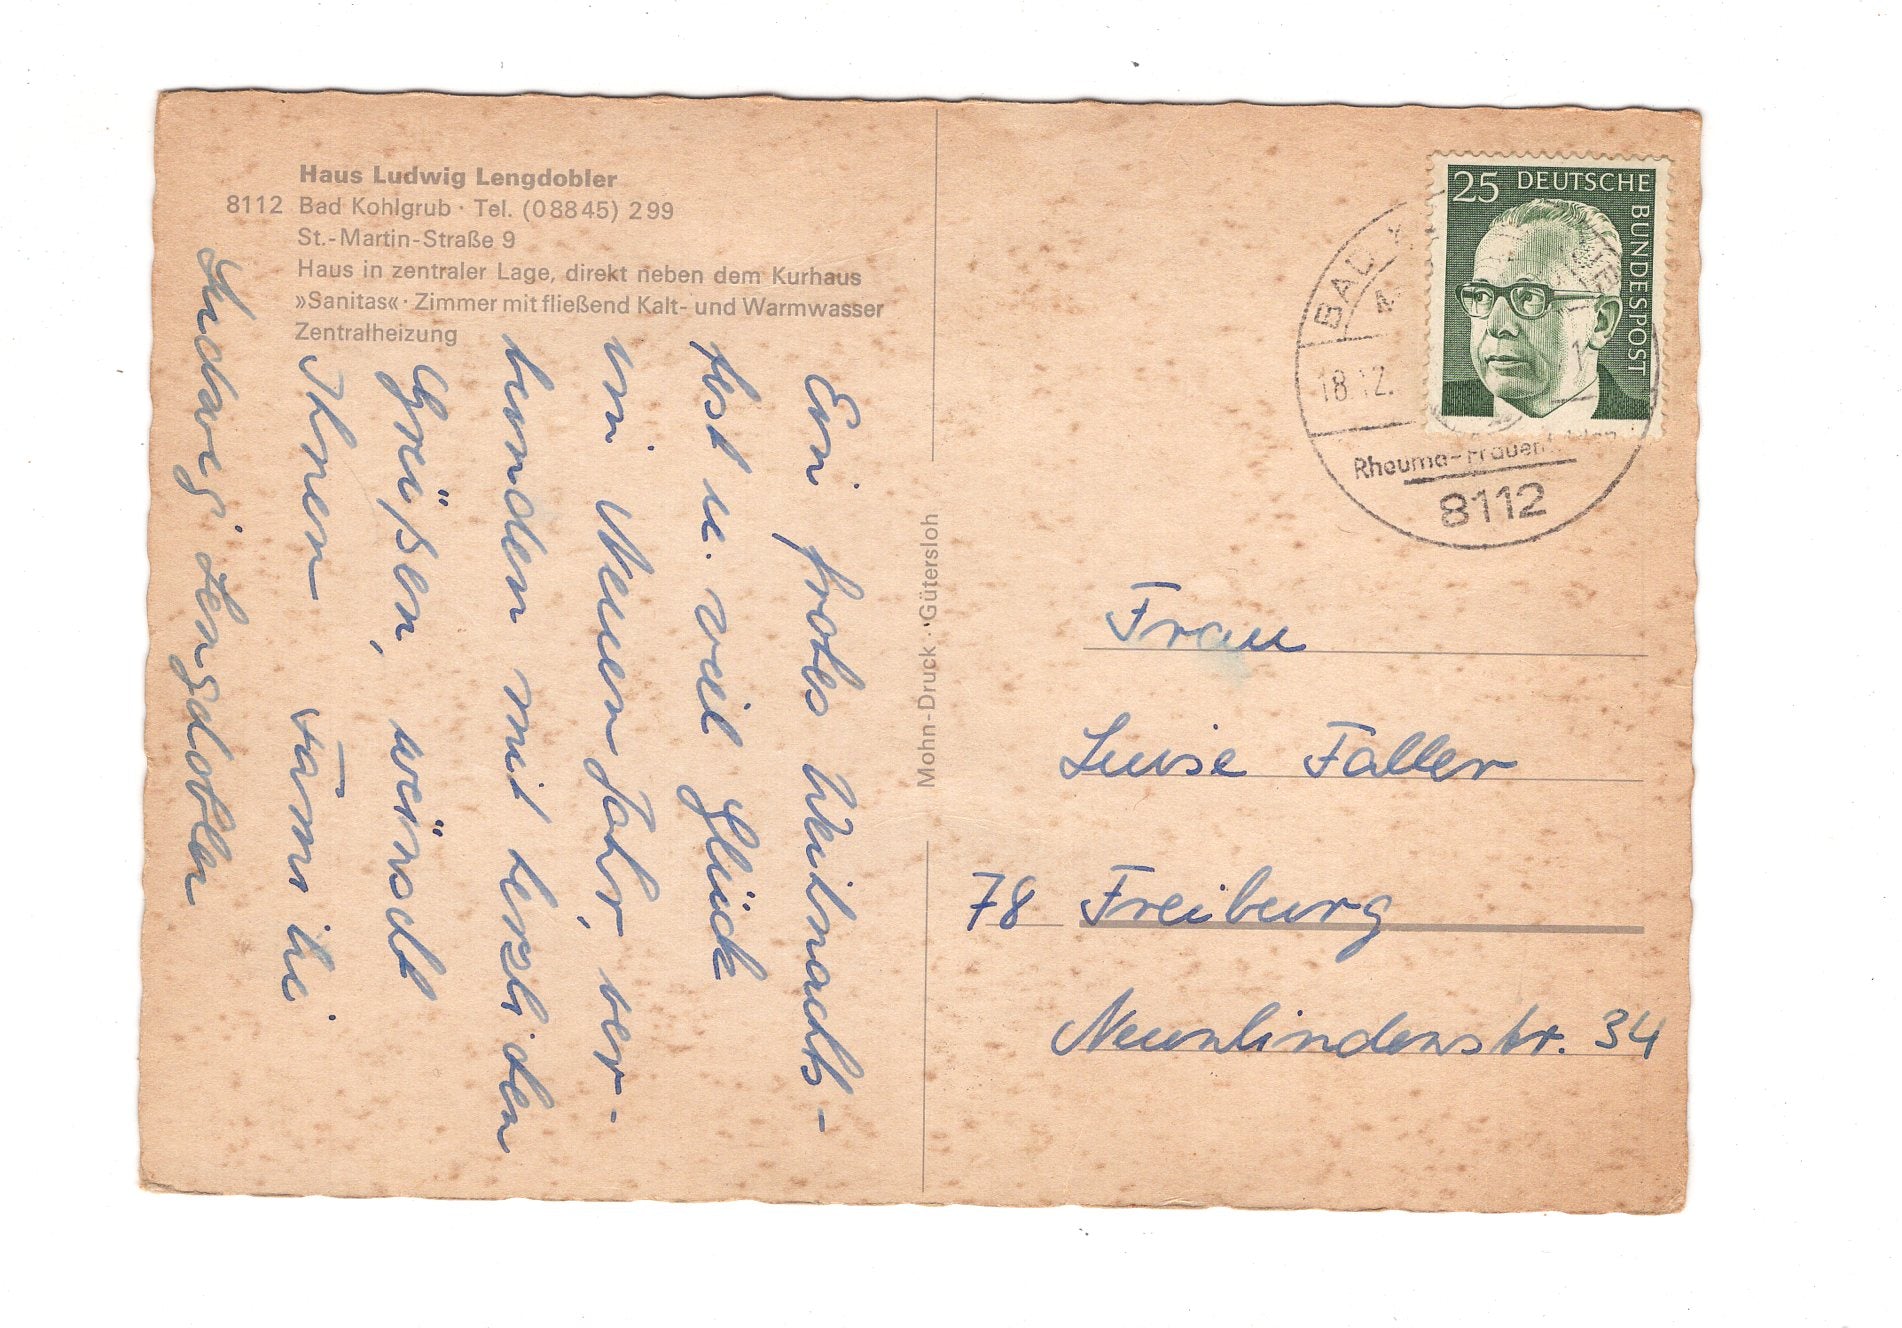 Haus Ludwig Lengdobler
8112 Bad Kohlgrub · Tel. (08845) 299
St.-Martin-Straße 9
Haus in zentraler Lage, direkt neben dem Kurhaus
»Sanitas« · Zimmer mit fließend Kalt- und Warmwasser
Zentralheizung
Ein frohes Weihnachts-
fest u. viel Glück
im Neuen Jahr, ver-
bunden mit herzlichen
Grüßen, wünscht
Ihnen Familie
Ludwig Lengdobler
Mohn-Druck · Gütersloh
25 DEUTSCHE
BUNDESPOST
BAD
18.12.
Rheuma-Frauen
8112
Frau
Luise Faller
78 Freiburg
Neunlindenstr. 34